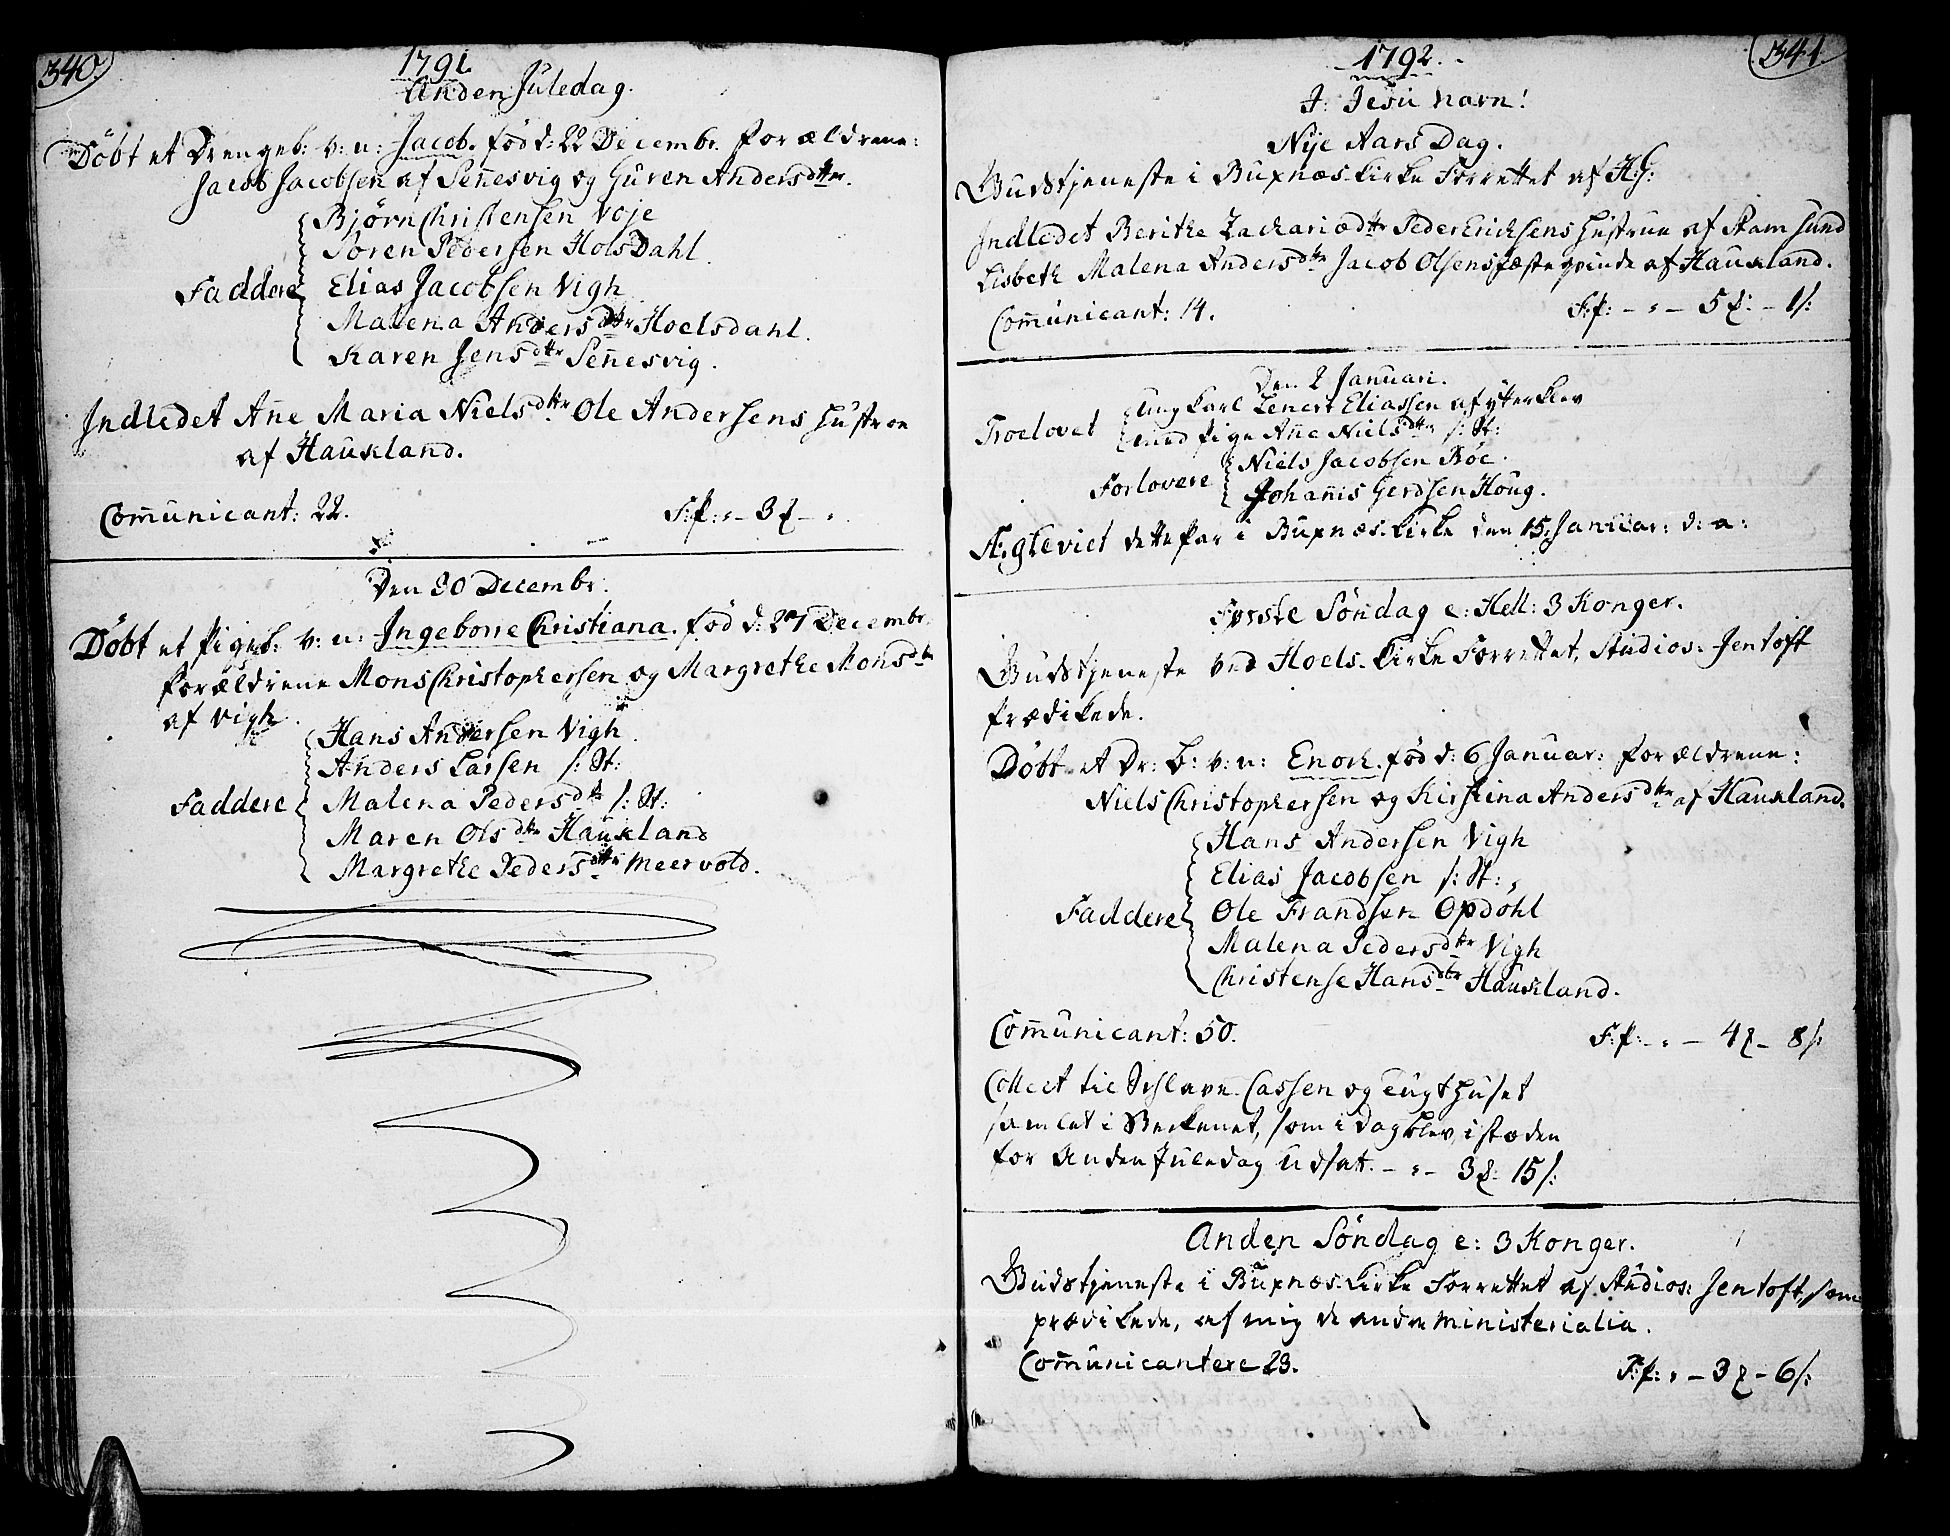 340.
1791.
Anden Juledag.
Döbt et Drengeb: v: n: Jacob. fød d: 22 Decembr. forældrene:
Jacob Jacobsen af Sen̄esvig og Guren Andersdttr.
Bjørn Christensen Voje
Søren Pedersen Holsdahl.
Faddere Elias Jacobsen Vigh
Malena Andersdttr Hoelsdahl.
Karen Jensdttr Sen̄esvig.
Indledet An̄e Maria Nielsdttr Ole Andersens Hustroe
af Haukland.
Com̄unicant: 22.
F:p: " - 3 ʒ - ".
Den 30 Decembr.
Döbt et Pigeb: v: n: Ingeborre Christiana. fød d: 27 Decembr.
forældrene Mons Christophersen og Margrethe Monsdtr
af Vigh.
Hans Andersen Vigh.
Anders Larsen /: St:
Faddere Malena Pedersdtr /: St:
Maren Olsdtr Haukland
Margrethe Pedersdttr Meervold.
341.
1792.
I: Jesu Navn!
Nije Aars Dag.
Gudstjeneste i Buxnæs-Kirke Forrettet af H:G:
Indledet Berithe Zachariædttr Peder Erichsens Hustrue af Stamsund
Lisbeth Malena Andersdtr Jacob Olsens fæsteqvinde af Haukland.
Com̄unicant: 14.
F:p: - " - 5 ʒ: - 1/:
Den 2 Januari.
Troelovet ungkarl Lenert Eliassen af ÿterklev
med Pige An̄e Nielsdttr /: St:
Forlovere Niels Jacobsen Böe.
Johan̄is Gerdsen Houg.
Ægteviet dette Par i Buxnæs-Kirke den 15. Januar: d: a:
Første Söndag e: Hell: 3 Konger.
Gudstjeneste ved Hoels-Kirke Forrettet, Studios: Jentoft
prædikede.
Döbt et Dr: b: v: n: Enoch. fød d: 6 Januar: forældrene:
Niels Christophersen og Kirstina Andersdttr af Haukland.
Hans Andersen Vigh
Elias Jacobsen /: St:
Faddere Ole Frandsen Opdöhl
Malena Pedersdtr Vigh
Christense Hansdtr Haukland.
Com̄unicant: 50.
F:p: - " - 4 ʒ - 8/:
Collect til Schlave-Cassen og Tugthuset
samlet i Bekkenet, som i dag blev, i stæden
for Anden Juledag udsat. - " - 3 ʒ: 15/:
Anden Söndag e: 3 Konger.
Gudstjeneste i Buxnæs-Kirke Forrettet af Studios: Jentoft, som
prædikede, af mig de andre ministerialia.
Com̄unicantere 23.
F:p: " - 3 ʒ - 6/: